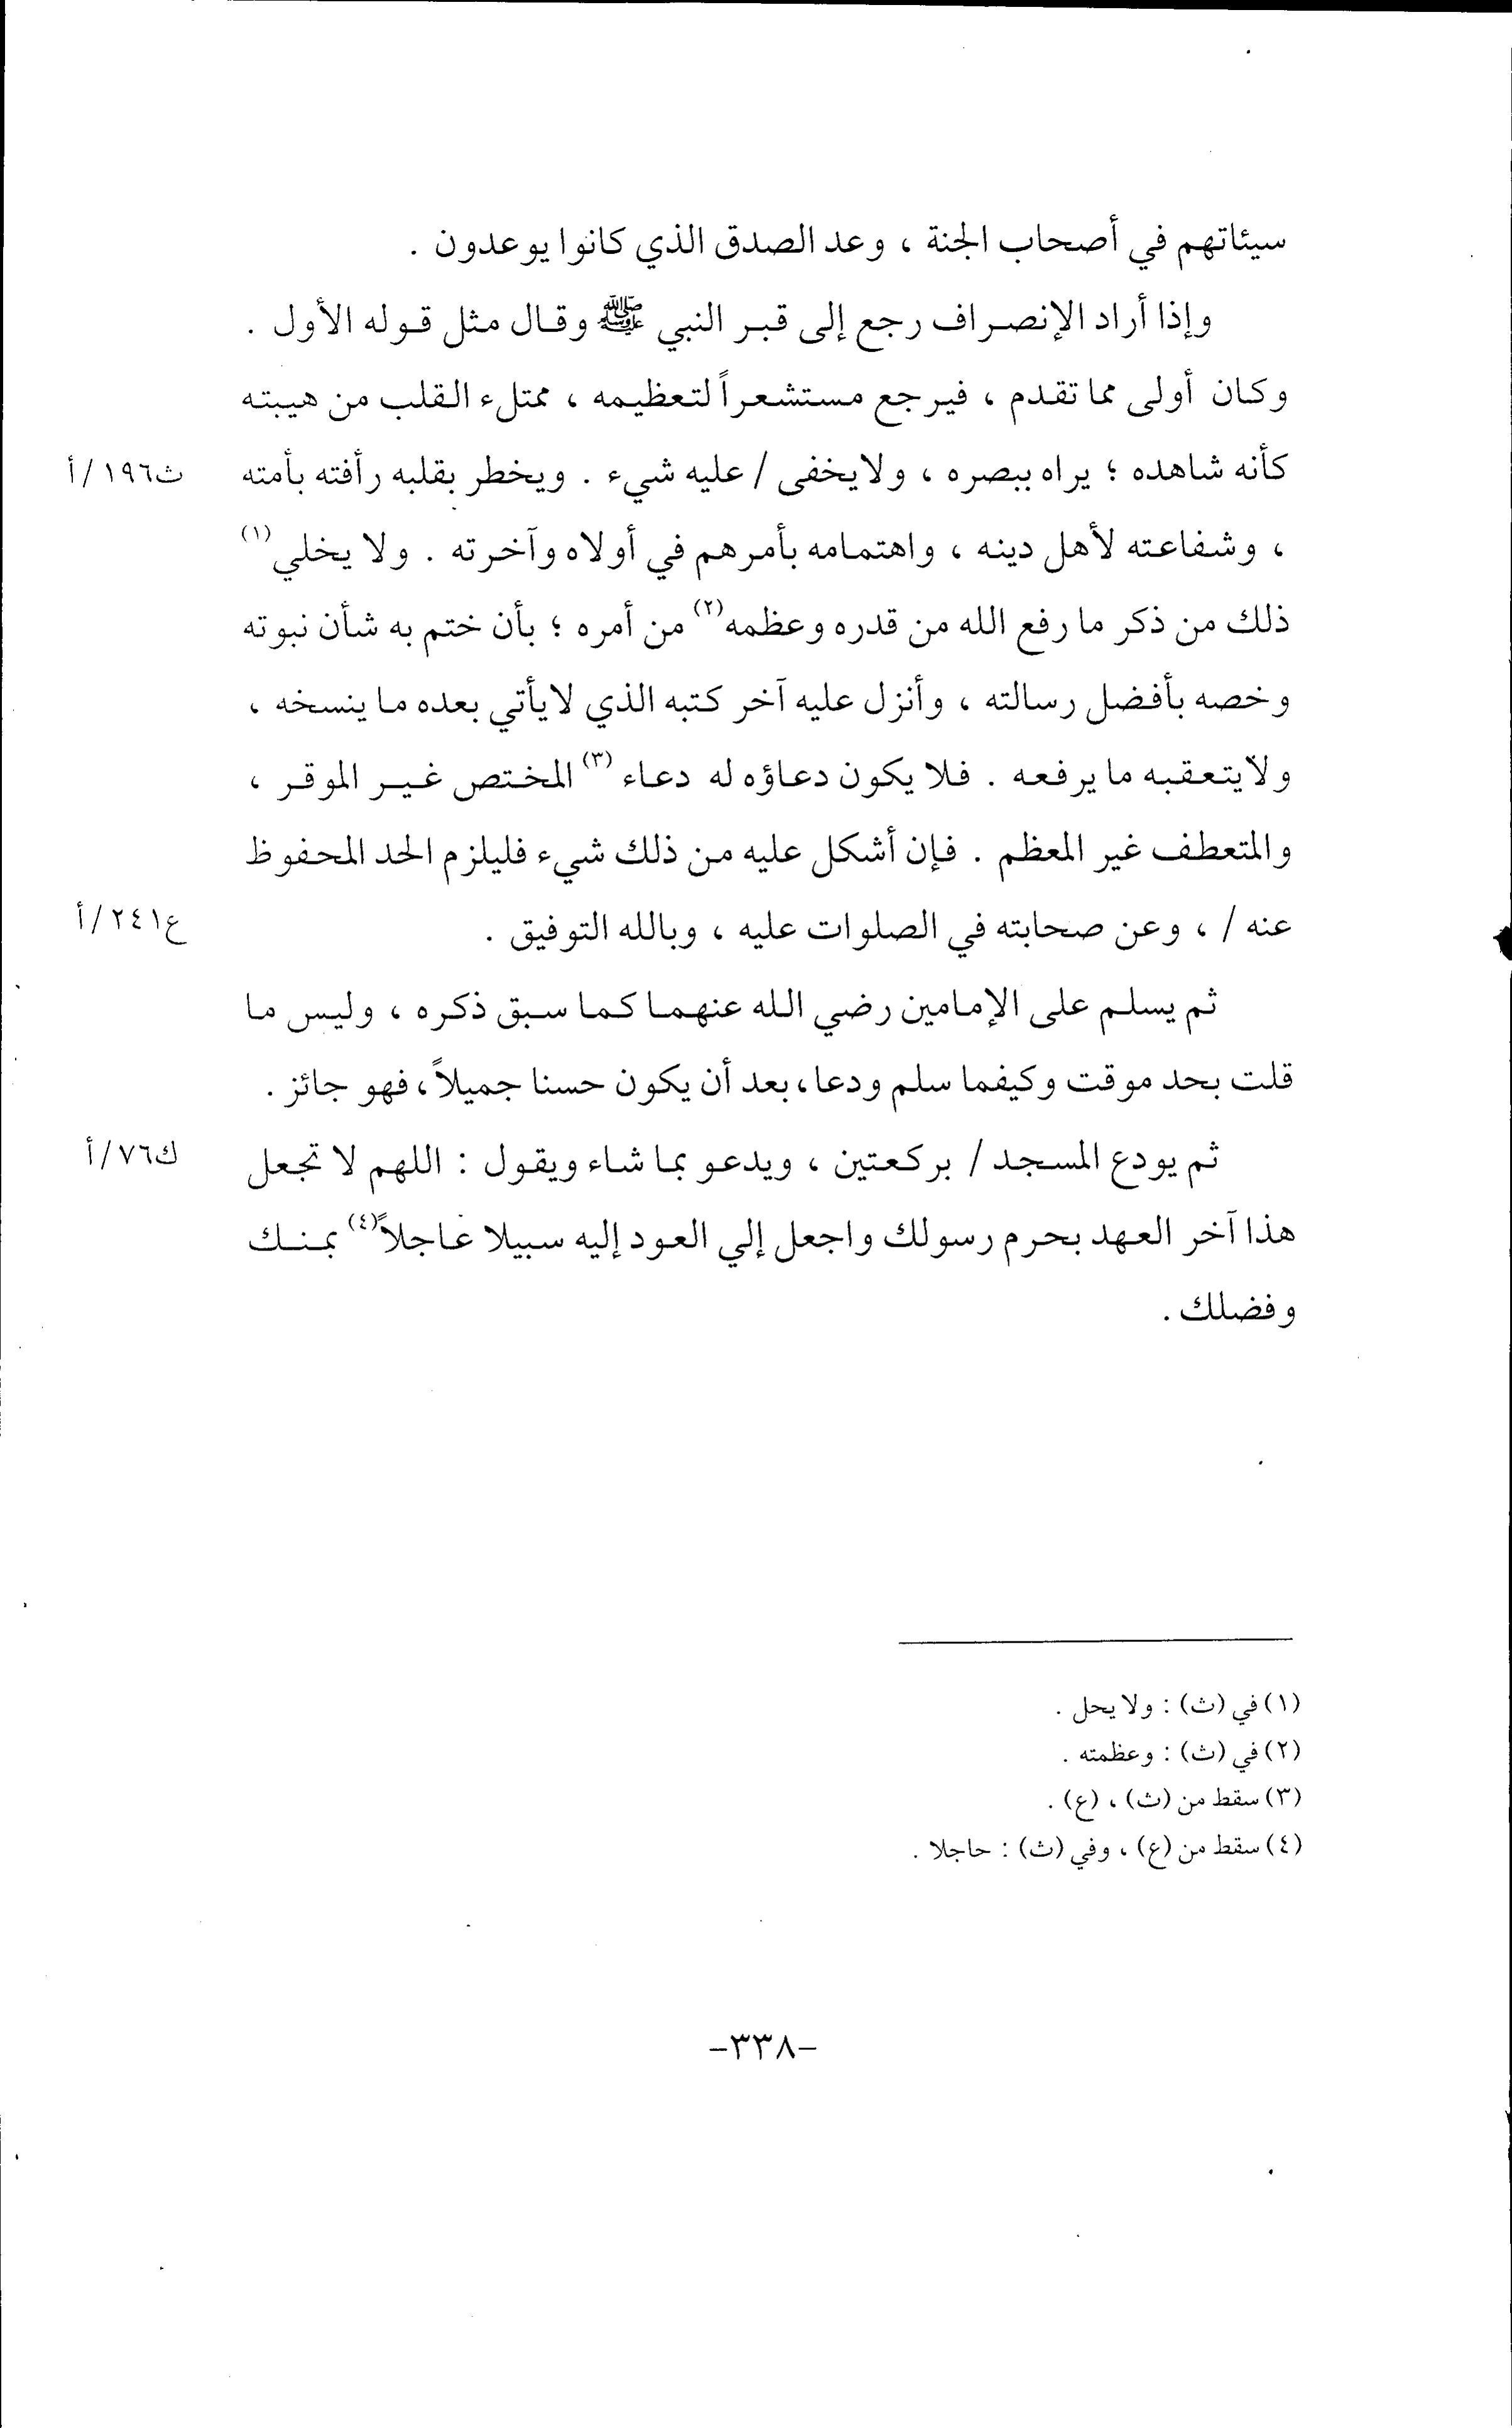 سيئاتهم في أصحاب الجنة ، وعد الصدق الذي كانوا يوعدون .
وإذا أراد الإنصراف رجع إلى قبر النبي ﷺ وقال مثل قوله الأول .
وكان أولى مما تقدم ، فيرجع مستشعراً لتعظيمه ، ممتلء القلب من هيبته
كأنه شاهده ؛ يراه ببصره ، ولايخفى / عليه شيء . ويخطر بقلبه رأفته بأمته
ث١٩٦/أ
، وشفاعته لأهل دينه ، واهتمامه بأمرهم في أولاه وآخرته . ولا يخلي(١)
ذلك من ذكر ما رفع الله من قدره وعظمه(٢) من أمره ؛ بأن ختم به شأن نبوته
وخصه بأفضل رسالته ، وأنزل عليه آخر كتبه الذي لايأتي بعده ما ينسخه ،
ولايتعقبه ما يرفعه . فلا يكون دعاؤه له دعاء(٣) المختص غير الموقر ،
والمتعطف غير المعظم . فإن أشكل عليه من ذلك شيء فليلزم الحد المحفوظ
عنه / ، وعن صحابته في الصلوات عليه ، وبالله التوفيق .
ع٢٤١/أ
ثم يسلم على الإمامين رضي الله عنهما كما سبق ذكره ، وليس ما
قلت بحد موقت وكيفما سلم ودعا، بعد أن يكون حسنا جميلاً، فهو جائز .
ثم يودع المسجد / بركعتين ، ويدعو بما شاء ويقول : اللهم لا تجعل
ك٧٦/أ
هذا آخر العهد بحرم رسولك واجعل إلي العود إليه سبيلا عاجلاً(٤) بمنك
وفضلك .
(١) في (ث) : ولا يحل .
(٢) في (ث) : وعظمته .
(٣) سقط من (ث) ، (ع) .
(٤) سقط من (ع) ، وفي (ث) : حاجلا .
-٣٣٨-